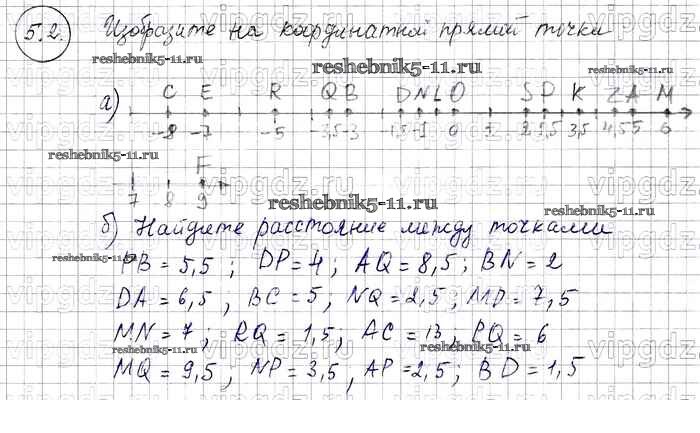 5.2. Изобразите на координатной прямой точки
reshebnik5-11.ru
reshebnik5-11.ru
а) C E R Q B D N L O S P K Z A M
-8 -7 -5 -3,5 -3 -1,5 -1 0 2 2,5 3,5 4,5 5 6
reshebnik5-11.ru
F
7 8 9
reshebnik5-11.ru
б) Найдите расстояние между точками
reshebnik5-11.ru
PB = 5,5 ; DP = 4 ; AQ = 8,5 ; BN = 2
DA = 6,5 , BC = 5 , NQ = 2,5 ; MD = 7,5
reshebnik5-11.ru
MN = 7 ; RQ = 1,5 ; AC = 13 , PQ = 6
reshebnik5-11.ru
reshebnik5-11.ru
MQ = 9,5 , NP = 3,5 , AP = 2,5 ; BD = 1,5
vipgdz.ru